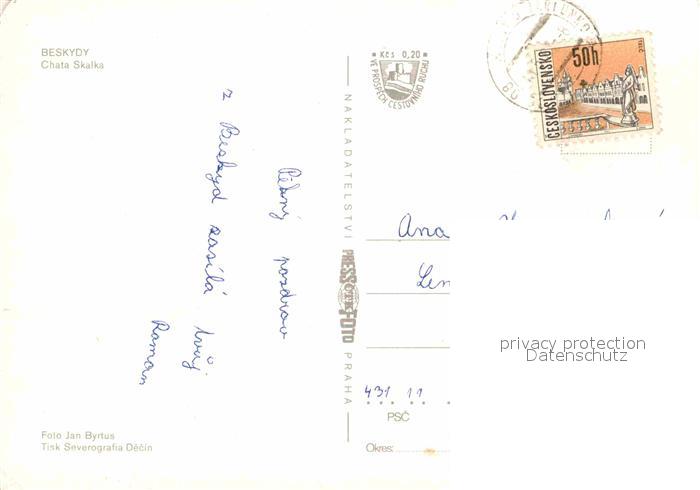 BESKYDY
Chata Skalka
Kčs 0,20
VE PROSPĚCH CESTOVNÍHO RUCHU
ČESKOSLOVENSKO
50h
TELČ
Pěkný pozdrav
z Beskyd zasílá tvůj
Roman
NAKLADATELSTVÍ
PRESSFOTO
PRAHA
Ana
Len
privacy protection
Datenschutz
431 11
PSČ
Okres:
Foto Jan Byrtus
Tisk Severografia Děčín